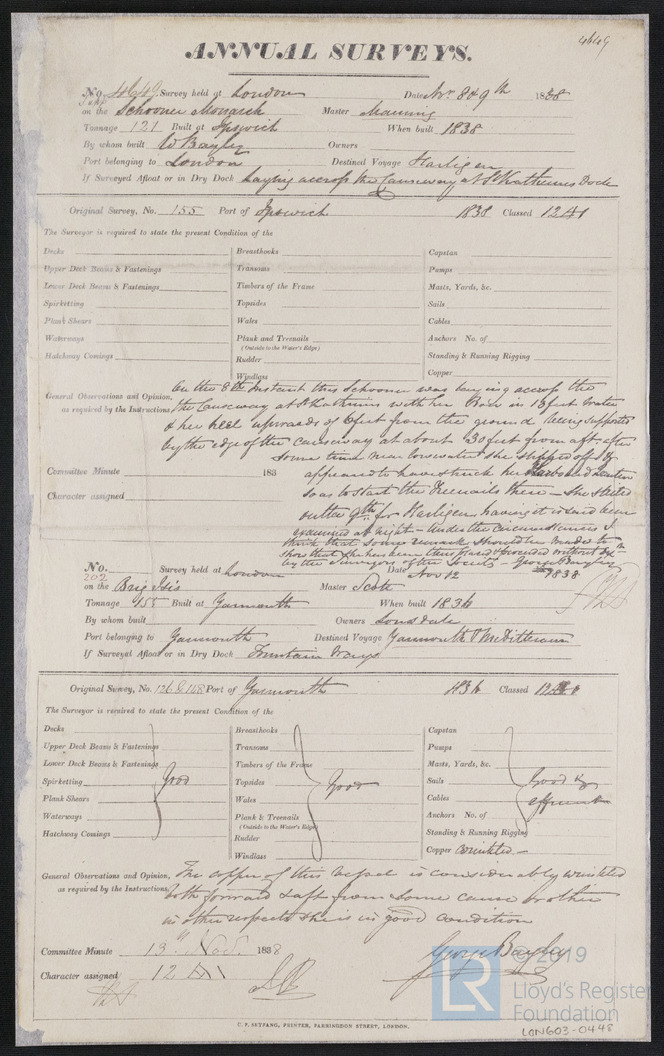 4649
ANNUAL SURVEYS.
No. 4649 Survey held at London Date Nov. 8 & 9th 1838
on the Schooner Monarch Master Manning
Tonnage 121 Built at Ipswich When built 1838
By whom built W Bayley Owners
Port belonging to London Destined Voyage Harligen
If Surveyed Afloat or in Dry Dock Laying accross the Causeway at St Katherines Dock
Original Survey, No. 155 Port of Ipswich 1838 Classed 12 A1
The Surveyor is required to state the present Condition of the
Decks Breasthooks Capstan
Upper Deck Beams & Fastenings Transoms Pumps
Lower Deck Beams & Fastenings Timbers of the Frame Masts, Yards, &c.
Spirketting Topsides Sails
Plank Shears Wales Cables
Waterways Plank and Treenails Anchors No. of
(Outside to the Water's Edge)
Hatchway Comings Rudder Standing & Running Rigging
Windlass Copper
General Observations and Opinion, as required by the Instructions
On the 8th Instant this Schooner was laying accross the
the Causeway at St Katherins with her Bow in 13 feet Water
& her heel upwards of 6 feet from the ground being supported
by the edge of the causeway at about 30 feet from aft after
some time near low water she slipped off &
Committee Minute 183
appeared to have struck her Starboard Quarter
Character assigned
so as to start the Treenails there - She
out the 9th for Harligen having it is said been
examined at Night - Under the circumstances I
think that some remark should be made to
show that she has been thus placed & grounded without
by the Surveyors of the Society - George Bayley
No. 202 Survey held at London Date Nov 12 1838
on the Brig Isis Master
Tonnage 155 Built at Yarmouth When built 1836
By whom built Owners Lonsdale
Port belonging to Yarmouth Destined Voyage Yarmouth &
If Surveyed Afloat or in Dry Dock Fountain Ways
Original Survey, No. Port of Yarmouth 1836 Classed 12 A1
The Surveyor is required to state the present Condition of the
Decks Breasthooks Capstan
Upper Deck Beams & Fastenings Transoms Pumps
Lower Deck Beams & Fastenings Timbers of the Frame Masts, Yards, &c.
Spirketting Good Topsides Good Sails Good &
Plank Shears Wales Cables efficient
Waterways Plank & Treenails Anchors No. of
(Outside to the Water's Edge)
Hatchway Comings Rudder Standing & Running Rigging
Windlass Copper Wrinkled -
General Observations and Opinion, as required by the Instructions
The copper of this Vessel is considerably wrinkled
both forward & aft from some cause or other
in other respects she is in good condition
Committee Minute 13th Novr. 1838
George Bayley
Character assigned 12 A1
C. F. SEYFANG, PRINTER, FARRINGDON STREET, LONDON.
© 2019
LR
Lloyd's Register
Foundation
LON603-0448